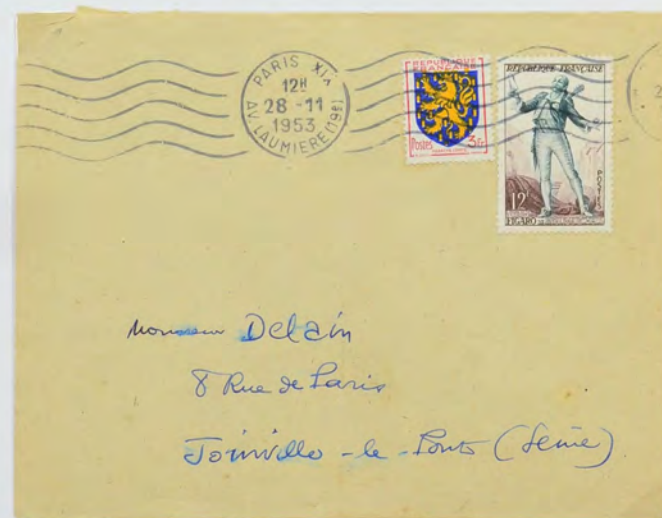 PARIS XIX
12H
28 -11
1953
AV. LAUMIERE (19e)
REPUBLIQUE
FRANÇAISE
Postes 3Fr
REPUBLIQUE FRANÇAISE
POSTES
12F
FIGARO
2
Monsieur Delain
8 Rue de Paris
Joinville-le-Pont (Seine)